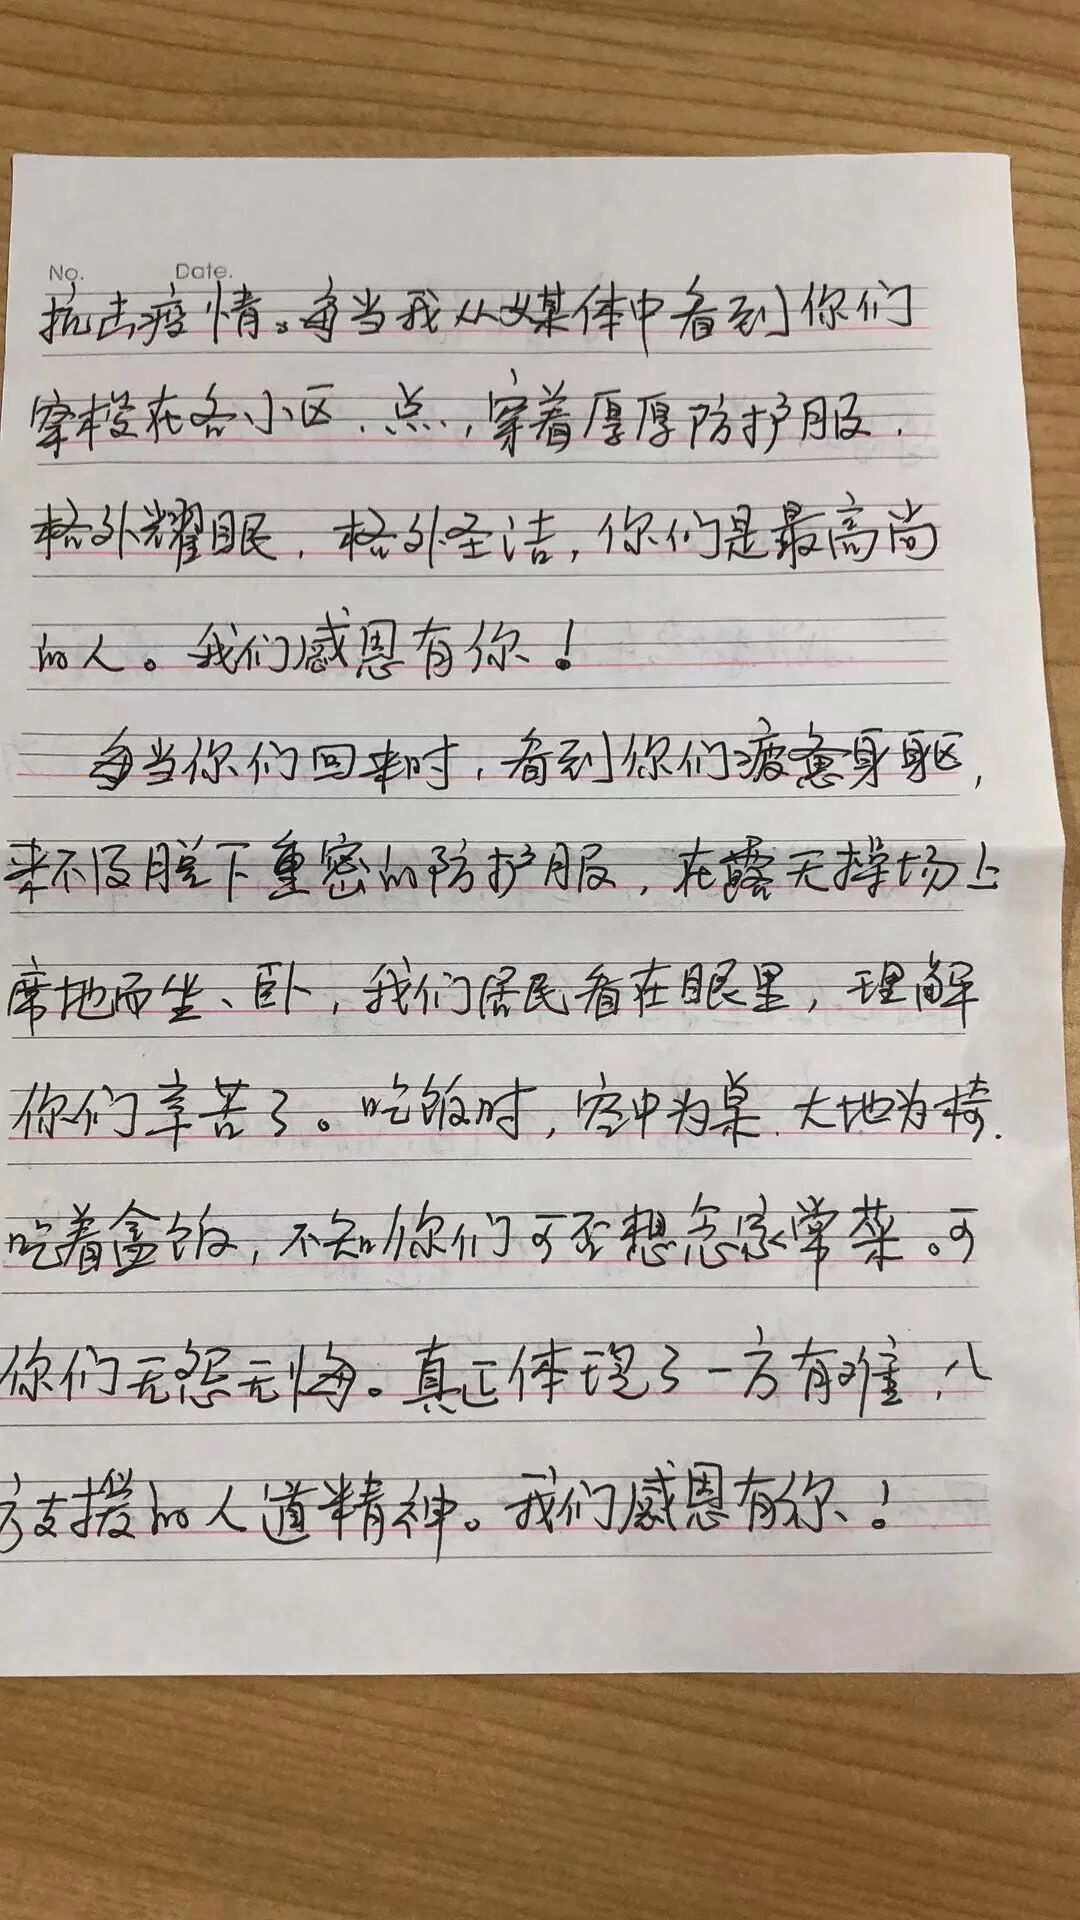 No. Date.
抗击疫情。每当我从媒体中看到你们
穿梭在各小区、点,穿着厚厚防护服,
格外耀眼,格外圣洁,你们是最高尚
的人。我们感恩有你!
每当你们回来时,看到你们疲惫身躯,
来不及脱下重密的防护服,在露天操场上
席地而坐、卧,我们居民看在眼里,理解
你们辛苦了。吃饭时,空中为桌,大地为椅.
吃着盒饭,不知你们可否想念家常菜。可
你们无怨无悔。真正体现了一方有难,八
方支援的人道精神。我们感恩有你!